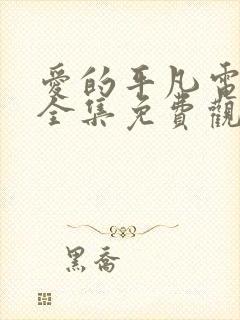 愛的平凡電
全集免費觀
黑喬